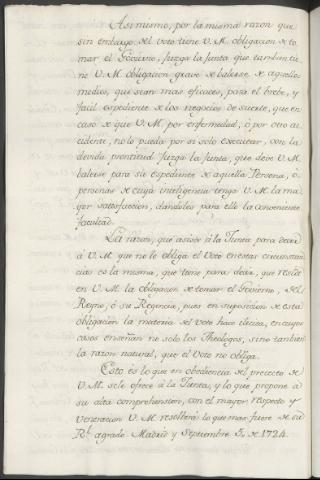 Asimismo, por la misma razon que
sin embargo del voto tiene V. M. obligacion de to-
mar el Govierno, Juzga la Junta que tambien tie-
ne V. M. obligacion grave de balerse de aquellos
medios, que sean mas eficaces, para el breve, y
facil expediente de los negocios de suerte, que en
caso de que V. M. por enfermedad, ò por otro ac-
cidente, no lo pueda por si solo executar, con la
devida prontitud Juzga la Junta, que deve V. M.
balerse para su expediente de aquella Persona, ò
personas de cuya inteligencia tenga V. M. la ma-
yor satisfaccion, dandoles para ello la conveniente
facultad.
La razon, que asiste à la Junta para decir
à V. M. que no le obliga el Voto en estas circunstan-
cias es la misma, que tiene para decir, que reside
en V. M. la obligacion de tomar el Govierno, del
Reyno, ò su Regencia, pues en suposicion de esta
obligacion la materia del Voto hace ilicita, en cuyos
casos enseñan no solo los Theologos, sino tambien
la razon natural, que el Voto no obliga.
Esto es lo que en obediencia del precepto de
V. M. se le ofrece à la Junta, y lo que propone à
su alta comprehension, con el mayor respecto y
veneracion V. M. resolverà lo que mas fuere de su
Rl. agrado Madrid y Septiembre 5, de 1724.